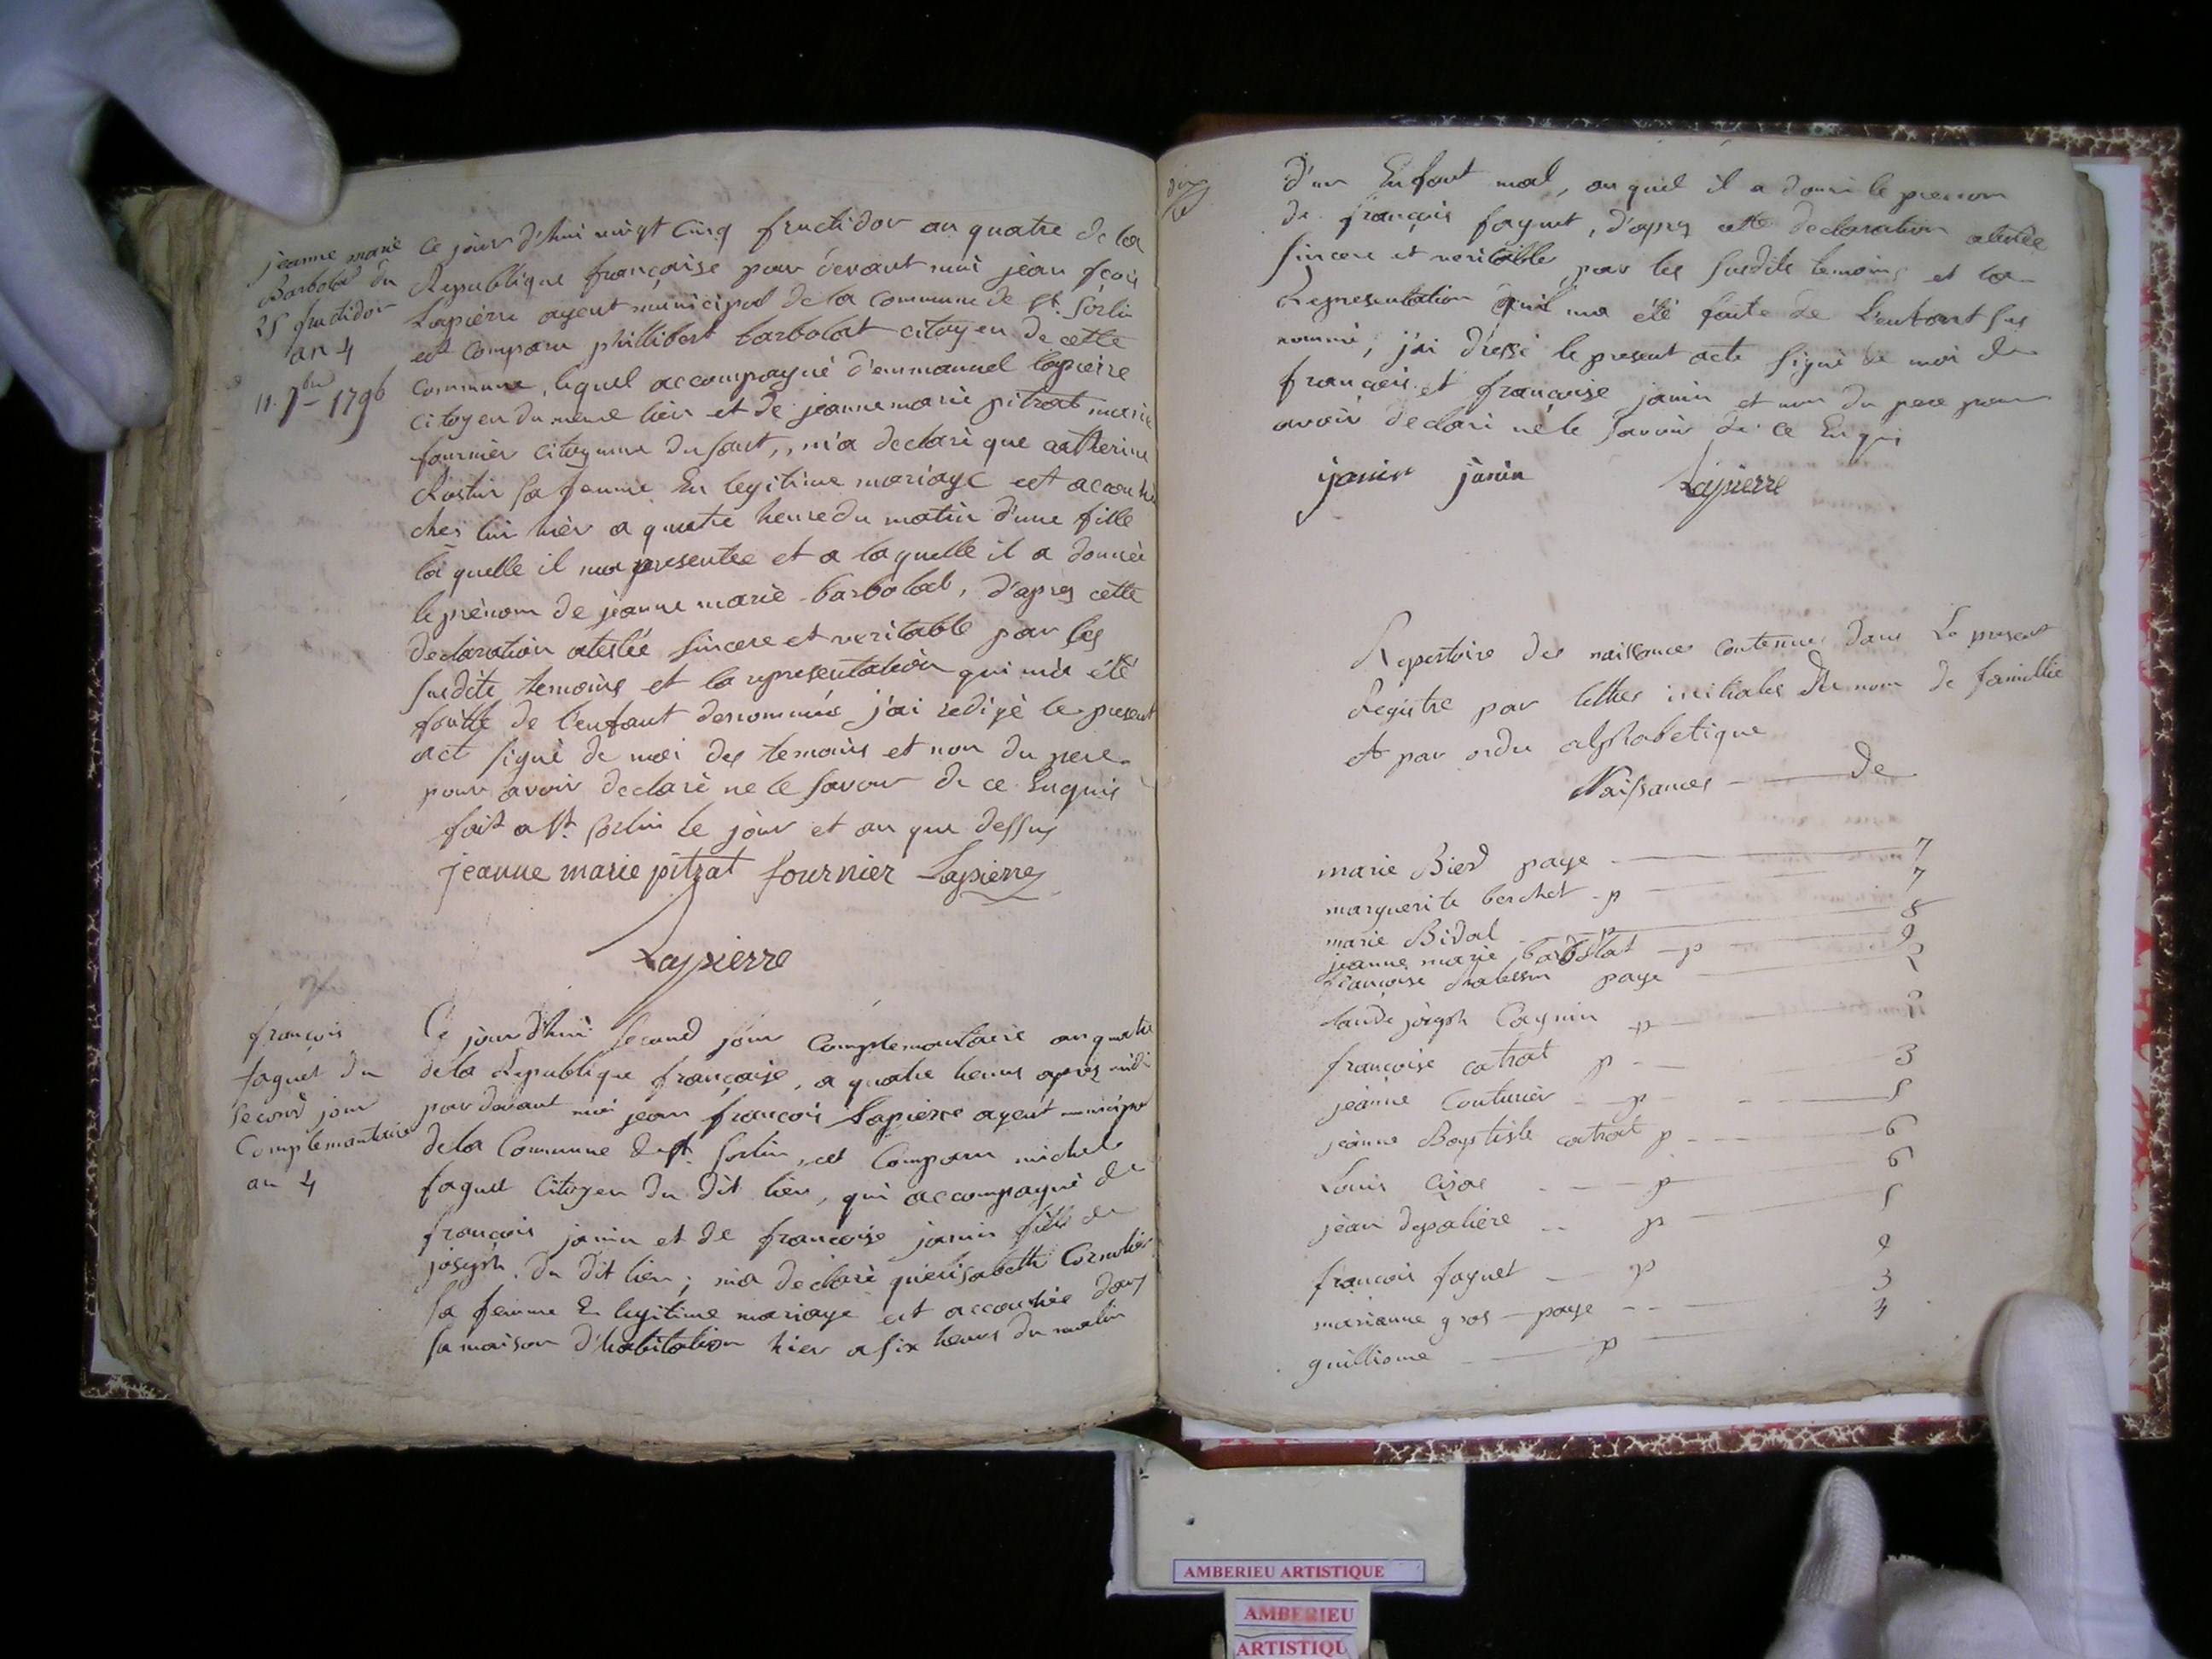 jeanne marie
Barbolat du
25 fructidor
an 4
11. 7bre 1796
Ce jour d'hui vingt cinq fructidor an quatre de la
Republique françoise par devant moi jean fçois
Lapierre agent municipal de la commune de st. Sorlin
est comparu phillibert barbolat citoyen de cette
commune, lequel accompagné d'emmanuel lapierre
citoyen du meme lieu et de jeanne marie pitrat
fournier citoyenne du saut, m'a declaré que catherine
sa femme En legitime mariage est
ches lui hièr a quatre heure du matin d'une fille
la quelle il ma presentée et a laquelle il a donnée
le prénom de jeanne marie barbolat, d'apres cette
declaration atestée sincere et veritable par les
susdits temoins et la representation qui m'a été
faitte de l'enfant denommé j'ai redigé le present
act signé de moi des temoins et non du pere
pour avoir declaré ne le savoir de ce Enquis
fait a st. Sorlin le jour et an que dessus
jeanne marie pitrat fournier Lapierre
Lapierre
françois
faguet du
second jour
Complemantaire
an 4
Ce jour d'hui second jour complemantaire an quatre
de la Republique françoise, a quatre heures apres midi
par devant moi jean françois Lapierre agent municipal
de la Commune de st. Sorlin, est comparu michel
faguet citoyen du dit lieu, qui accompagné de
françois janin et de françoise janin fille de
joseph du dit lieu; m'a declaré qu'elisabeth
sa femme En legitime mariage est accouchée dans
sa maison d'habitation hier a six heures du matin
d'un Enfant mal, auquel il a donné le prenom
de françois faguet, d'apres cette declaration atestée
sincere et veritable par les susdits temoins et la
Representation qu'il ma été faite de l'enfant sus
nommé, j'ai dressé le present acte signé de moi de
françois et françoise janin et non du pere pour
avoir declaré ne le savoir de ce Enquis
janin janin Lapierre
Repertoire des naissances contenues dans Le present
Registre par lettres initiales du nom de famillie
et par ordre alphabetique
Naissances de
marie Bied page 7
marguerite berchet p 7
marie Bidal p 8
jeanne marie barbolat p 9
françoise page
joseph Cagnin p 2
françoise catrat p 3
jeanne Couturier p
jeanne Baptiste catrat p 6
Louis p 6
jean depaliere p
françois faguet p 9
marianne gros page 3
guilliome p 4